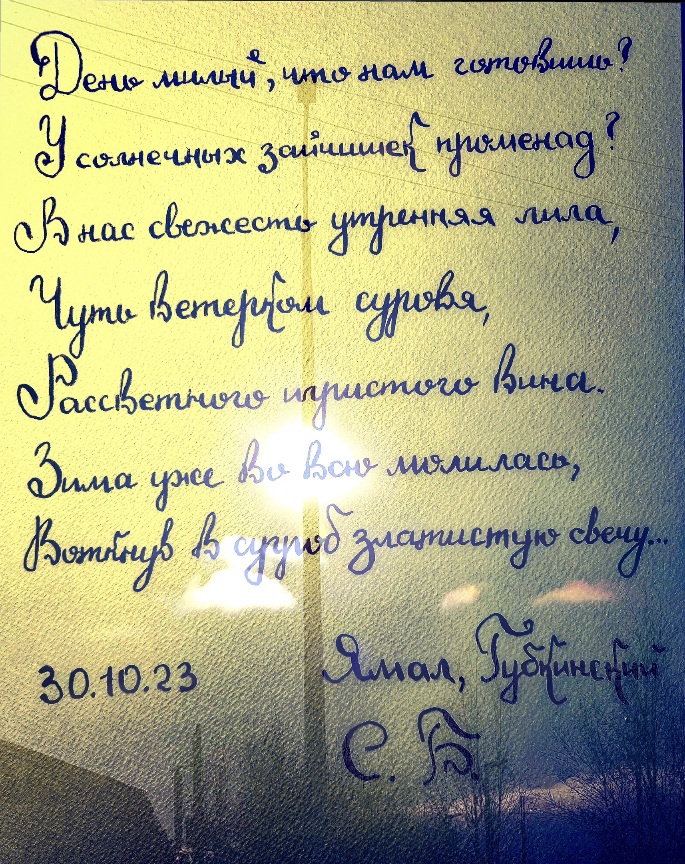 День милый, что нам готовишь?
У солнечных зайчишек променад?
В нас свежесть утренняя лила,
Чуть ветерком суровя,
Рассветного игристого вина.
Зима уже во всю молилась,
Воткнув в сугроб златистую свечу...
30.10.23
Ямал, Губкинский
С. Б.